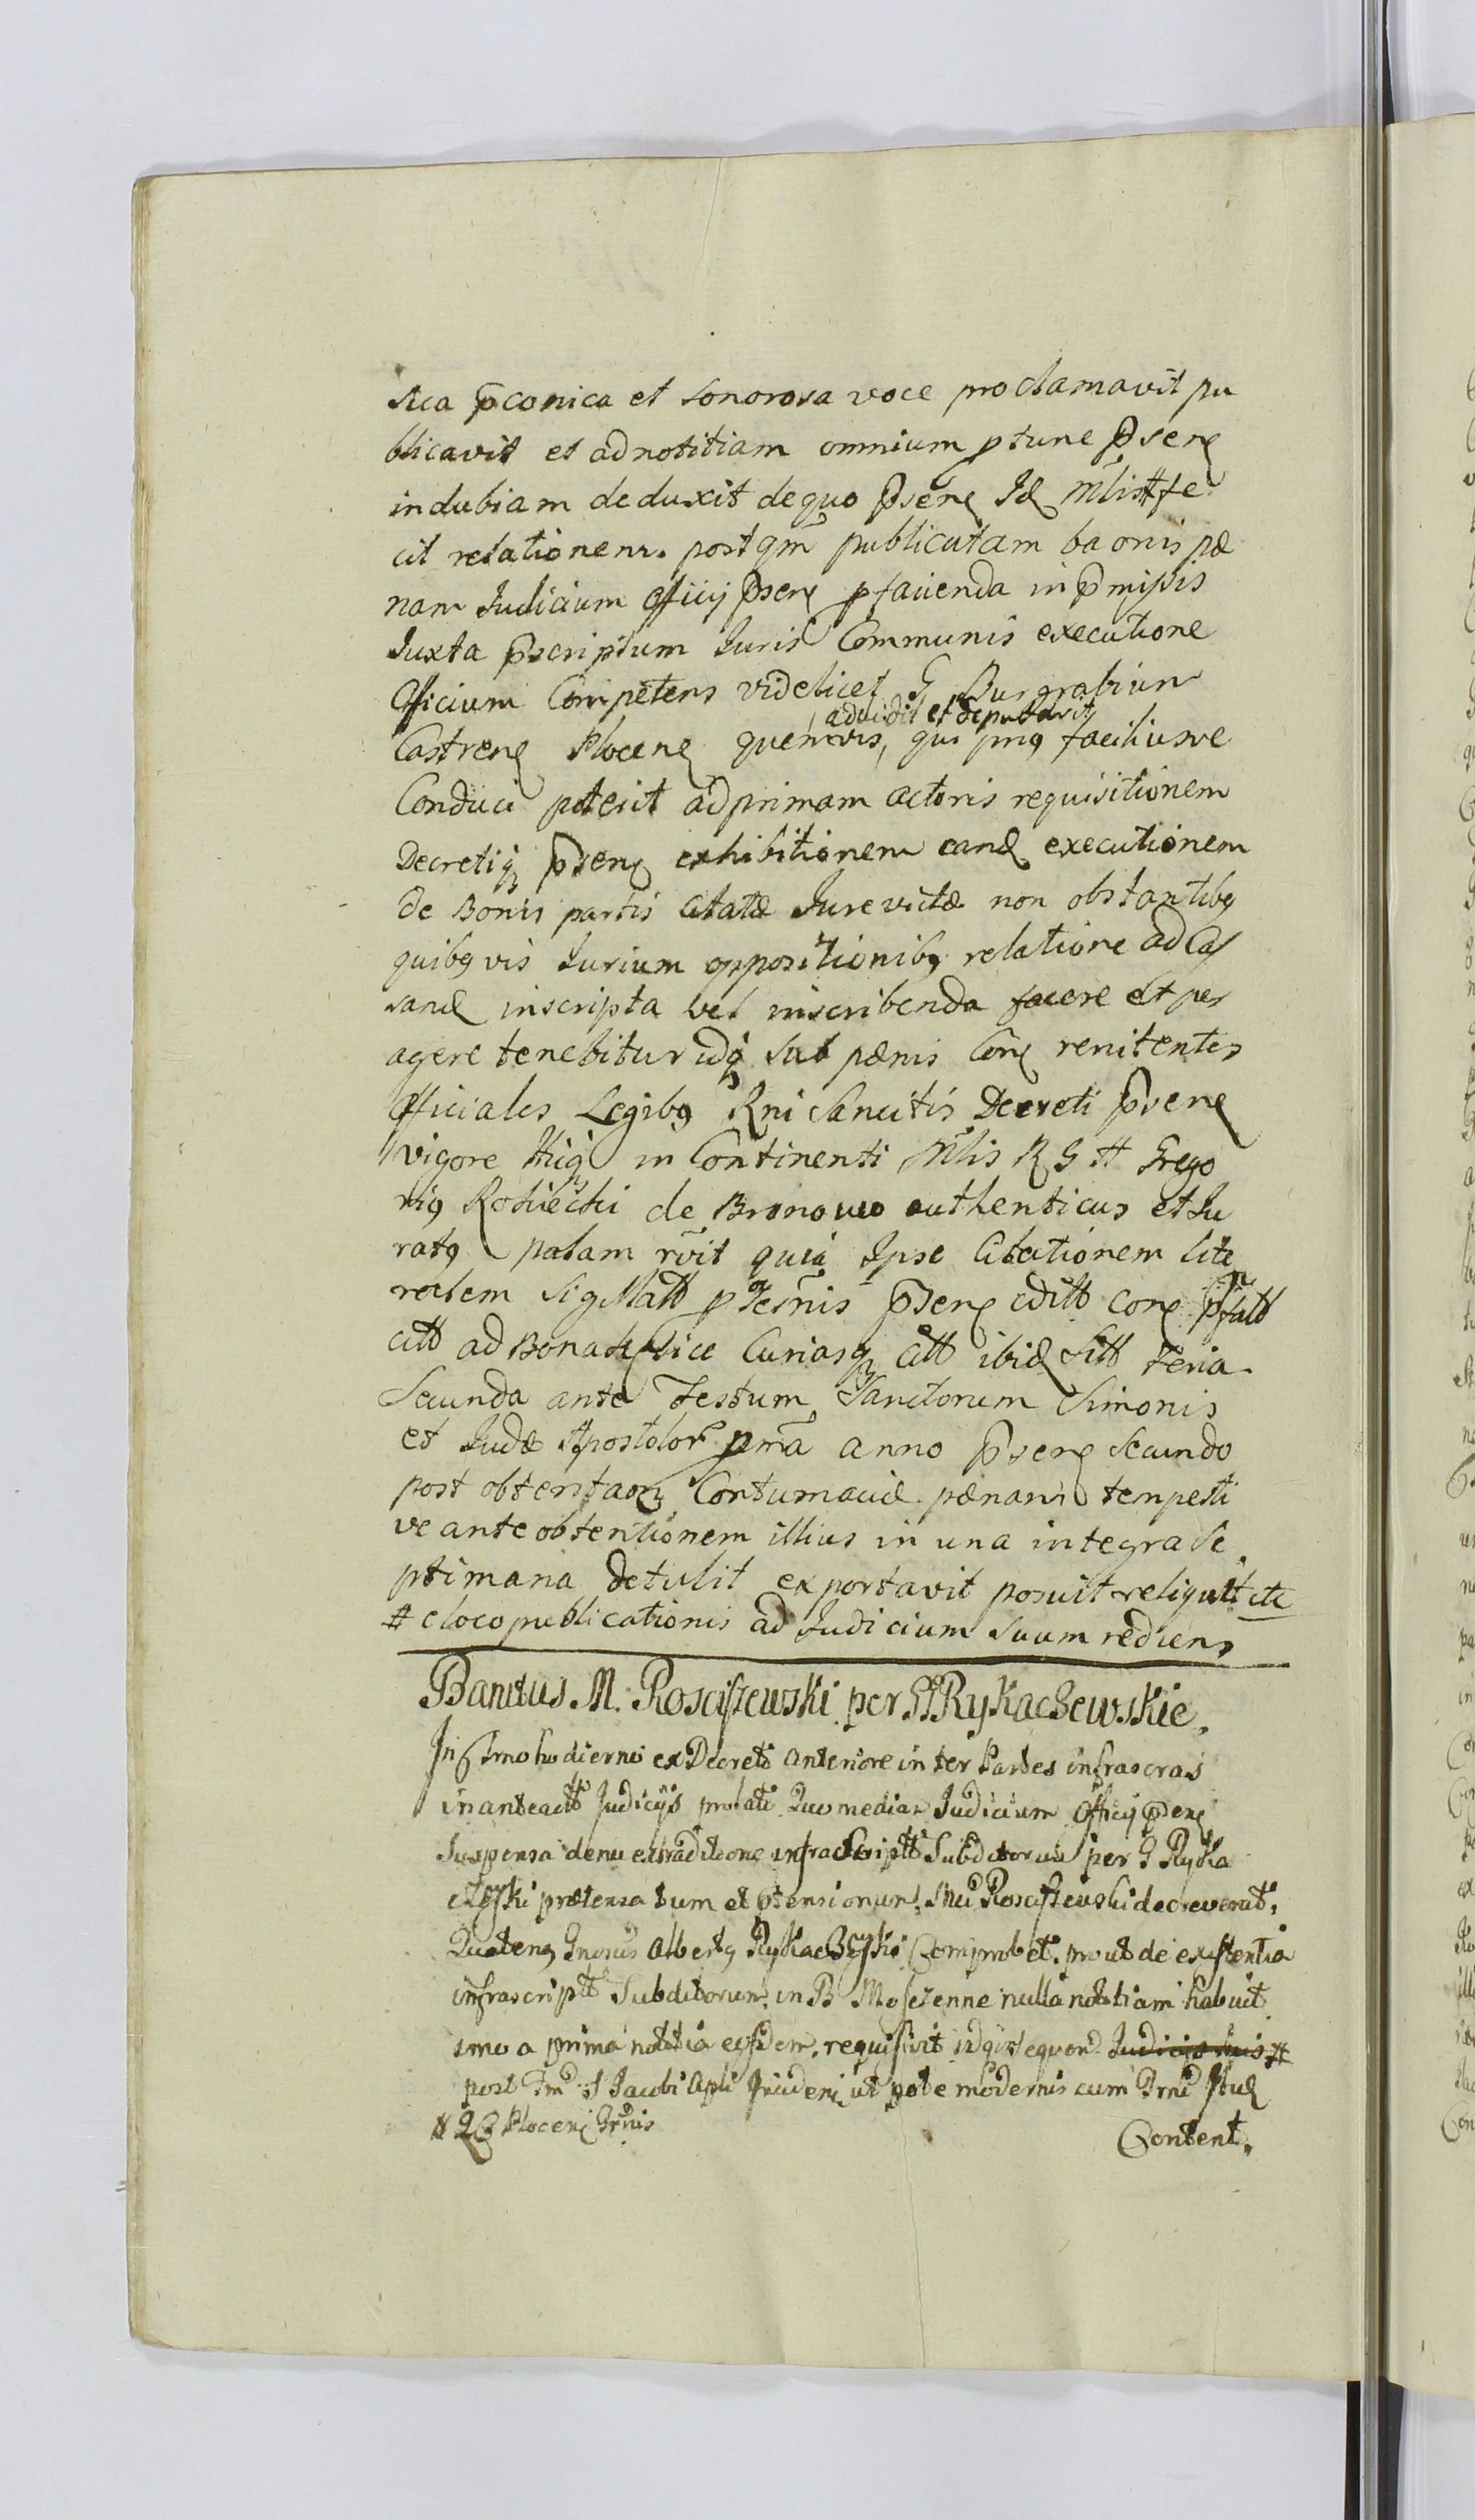 sua p̄conica et sonorosa voce proclamavit pu
blicavit et ad notitiam omnium ptunc p̄sens
indubiam deduxit de quo p̄sens Id Mlis # fe
cit relationem. post qm̄ publicatam baonis pæ
nam Judicium Officij p̄sens p facienda in p̄missis
Juxta p̄scriptum Juris Communis executione
Officium Competens videlicet G Burgrabium
addidit et deputavit
Castrens Plocens quemvis, qui priq faciliusve
Conduci poterit ad primam actoris requisitionem
Decretiq p̄sens exhibitionem eand executionem
de Bonis partis citatæ Jure victæ non obstantibq
quibq vis Jurium oppositionibq relatione ad Ca
sand inscripta vel inscribenda facere et per
agere tenebitur idq sub pænis Con renitentes
Officiales Legibq Rni Sancitis Decreti p̄sens
vigore Hicq in Continenti Mlis R G # Grego
riq Rościecki de Bronowo authenticus et Ju
ratq palam rvit quia Ipse Citationem lite
ralem Sigillatt p̄sens editt
citt ad Bona Curiasq citt ibid Sitt Feria
Secunda ante Festum Sanctorum Simonis
et Judæ Apostolor pma anno p̄sens secundo
post obtentaon Contumaciæ pænam tempesti
ve ante obtentionem illius in una integra Se
ptimana detulit exportavit posuit reliquit etc
# e loco publicationis ad Judicium suum rediens
Banitus M. Rosciszewski per GG Rykaczewskie.
In Tmo hodierno ex Decreto anteriore inter Partes infrascras
in anteactt Judicijs prolato Quo median Judicium Officij p̄sens
Suspensa denu extraditione infrascriptt Subditorum per G Ryka
czeski prætensa tum et ptensionum Mci Rosciszewski decreverat,
Quatenq Gnosus Albertq Rykaczeski Comprobet. prout de existentia
infrascriptt Subditorum in B Moszenne nulla notitiam habuit
imo a prima notitia eosdem, requisivit idq Judicijs suis #
post Fm S Jacobi Apli Inciden ut pote modernis cum
# Plocen Trnis
Content.